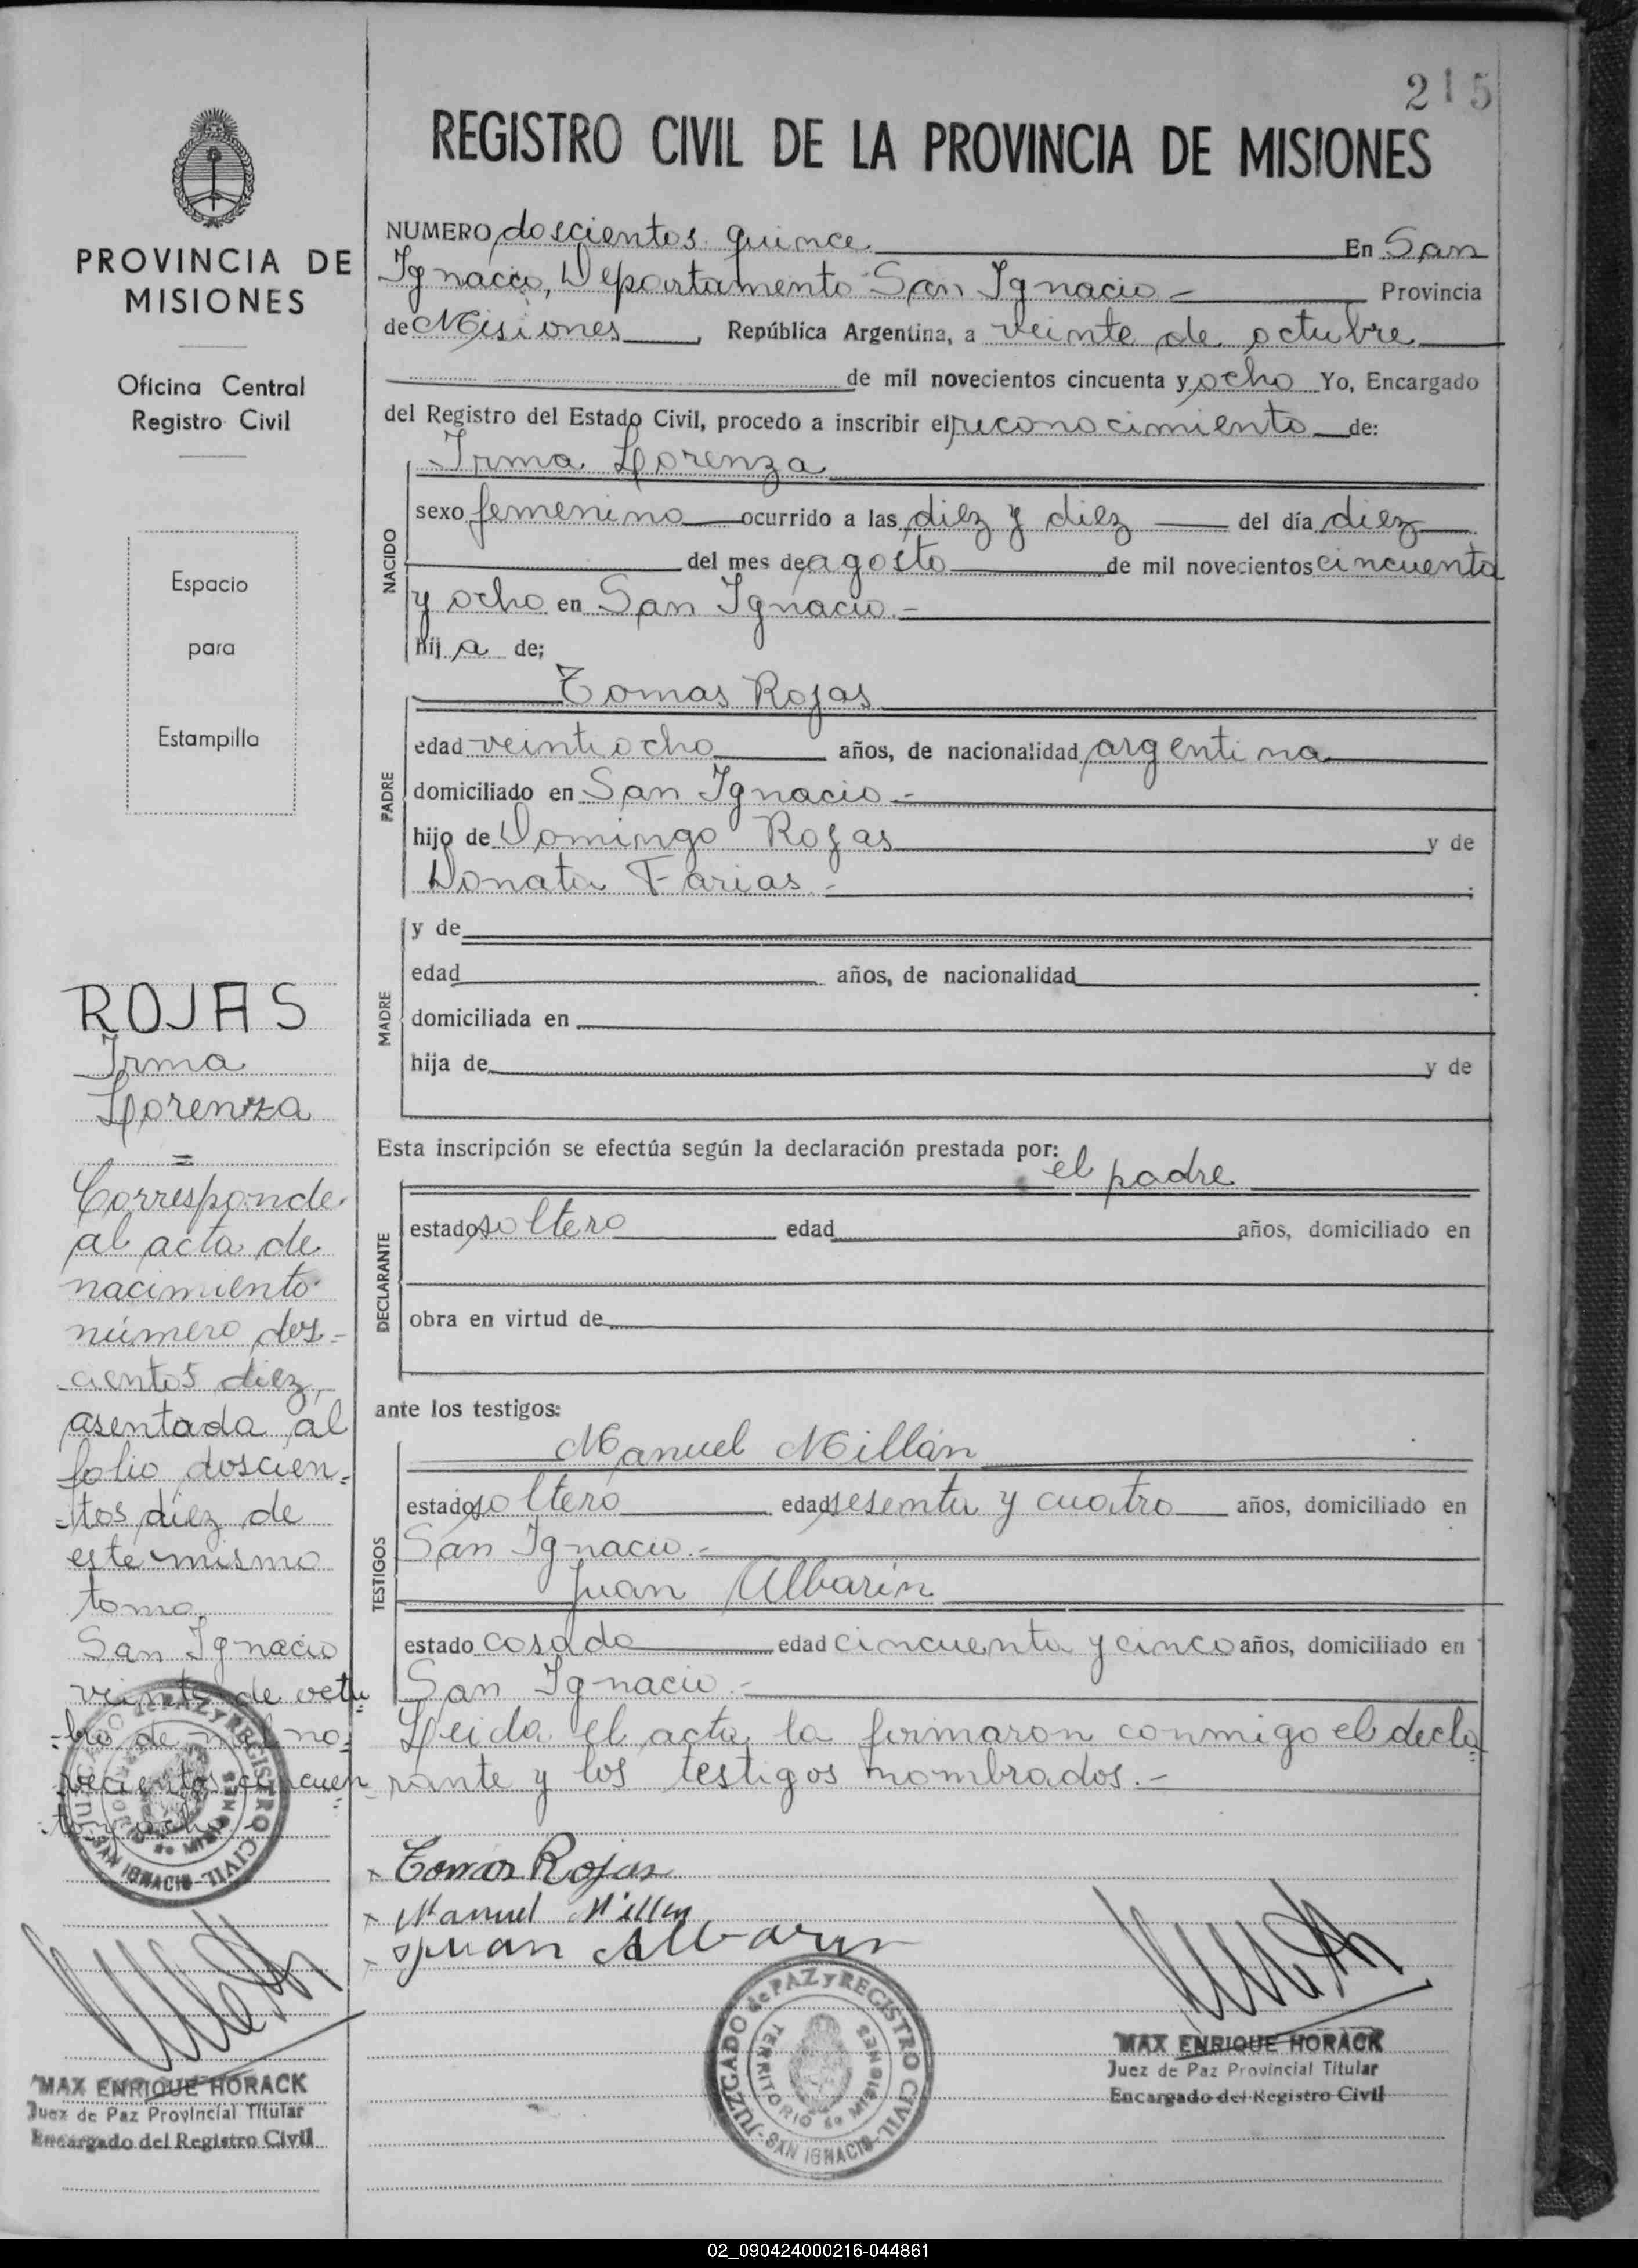 215
REGISTRO CIVIL DE LA PROVINCIA DE MISIONES
PROVINCIA DE
MISIONES
Oficina Central
Registro Civil
Espacio
para
Estampilla
ROJAS
Irma
Lorenza
=
Corresponde
al acta de
nacimiento
número dos-
cientos diez,
asentada al
folio doscien=
=tos diez de
este mismo
tomo.
San Ignacio
veinte de octu
=bre de mil no=
vecientos cincuen
=ta y ocho
JUZGADO de PAZ y REGISTRO CIVIL
-SAN IGNACIO-
MAX ENRIQUE HORACK
Juez de Paz Provincial Titular
Encargado del Registro Civil
NUMERO doscientos quince En San
Ignacio, Departamento San Ignacio - Provincia
de Misiones, República Argentina, a veinte de octubre
de mil novecientos cincuenta y ocho Yo, Encargado
del Registro del Estado Civil, procedo a inscribir el reconocimiento de:
NACIDO
Irma Lorenza
sexo femenino ocurrido a las diez y diez del día diez
del mes de agosto de mil novecientos cincuenta
y ocho en San Ignacio.-
hija de;
PADRE
Tomas Rojas
edad veintiocho años, de nacionalidad argentina
domiciliado en San Ignacio.-
hijo de Domingo Rojas y de
Donata Farias.- ;
MADRE
y de
edad años, de nacionalidad
domiciliada en
hija de y de
Esta inscripción se efectúa según la declaración prestada por:
DECLARANTE
el padre
estado soltero edad años, domiciliado en
obra en virtud de
ante los testigos:
TESTIGOS
Manuel Millán
estado soltero edad sesenta y cuatro años, domiciliado en
San Ignacio.-
Juan Albarin
estado casado edad cincuenta y cinco años, domiciliado en
San Ignacio.-
Leida el acta la firmaron conmigo el decla
rante y los testigos nombrados.-
x Tomas Rojas
x Manuel Millan
x Juan Albarin
JUZGADO de PAZ y REGISTRO CIVIL
TERRITORIO de MISIONES
-SAN IGNACIO-
MAX ENRIQUE HORACK
Juez de Paz Provincial Titular
Encargado del Registro Civil
02_090424000216-044861